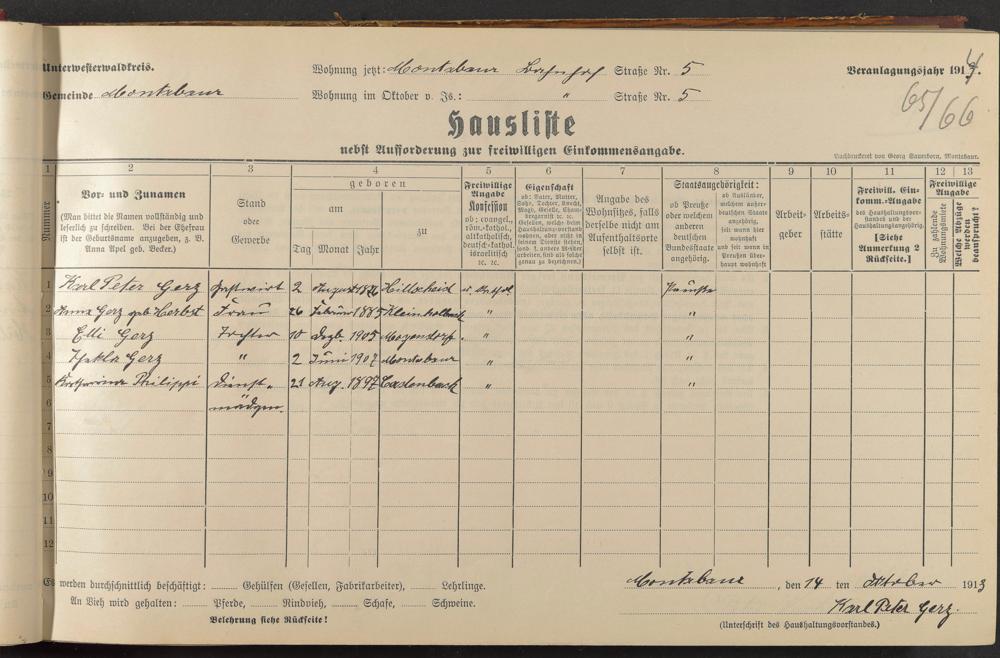 Unterwesterwaldkreis. Wohnung jetzt: Montabaur Bahnhof Straße Nr. 5 Veranlagungsjahr 1914.
Gemeinde Montabaur Wohnung im Oktober v. Js.: " Straße Nr. 5
65/66
Hausliste
nebst Aufforderung zur freiwilligen Einkommensangabe.
Buchdruckerei von Georg Sauerborn, Montabaur.
1 2 3 4 5 6 7 8 9 10 11 12 13
Nummer
Vor- und Zunamen
(Man bittet die Namen vollständig und
leserlich zu schreiben. Bei der Ehefrau
ist der Geburtsname anzugeben, z. B.
Anna Apel geb. Becker.)
Stand
oder
Gewerbe
geboren
am
zu
Tag Monat Jahr
Freiwillige
Angabe
Konfession
ob: evangel.,
röm.-kathol.,
altkatholisch,
deutsch-kathol.
israelitisch
ec. ec.
Eigenschaft
ob: Vater, Mutter,
Sohn, Tochter, Knecht,
Magd, Geselle,
Angabe des
Wohnsitzes, falls
derselbe nicht am
Aufenthaltsorte
selbst ist.
Staatsangehörigkeit:
ob Preuße
oder welchem
anderen
deutschen
Bundesstaate
angehörig.
ob Ausländer,
welchem außer-
deutschen Staate
angehörig,
seit wann hier
wohnhaft
und seit wann in
Preußen über-
haupt wohnhaft
Arbeit-
geber
Arbeits-
stätte
Freiwill. Ein-
komm.-Angabe
des Haushaltungsvor-
standes und der
Haushaltungsangehörig.
[Siehe
Anmerkung 2
Rückseite.]
Freiwillige
Angabe
Zu zahlende
Wohnungsmiete
Welche Abzüge
werden
beansprucht?
1 Karl Peter Gerz Gastwirt 2 August Hillscheid r. Kathol. Preuße
2 Anna Gerz geb. Herbst Frau 26 Februar 1885 " "
3 Elli Gerz Tochter 10 Dezb. 1905 Mogendorf " "
4 Thekla Gerz " 2 Juni 1907 Montabaur " "
5 Katharina Philippi Dienst- 21 Aug. 1897 Cadenbach " "
6 mädchen
7
8
9
10
11
12
Es werden durchschnittlich beschäftigt: Gehülfen (Gesellen, Fabrikarbeiter), Lehrlinge.
An Vieh wird gehalten: Pferde, Rindvieh, Schafe, Schweine.
Belehrung siehe Rückseite!
Montabaur, den 14 ten Oktober 1913
Karl Peter Gerz.
(Unterschrift des Haushaltungsvorstandes.)